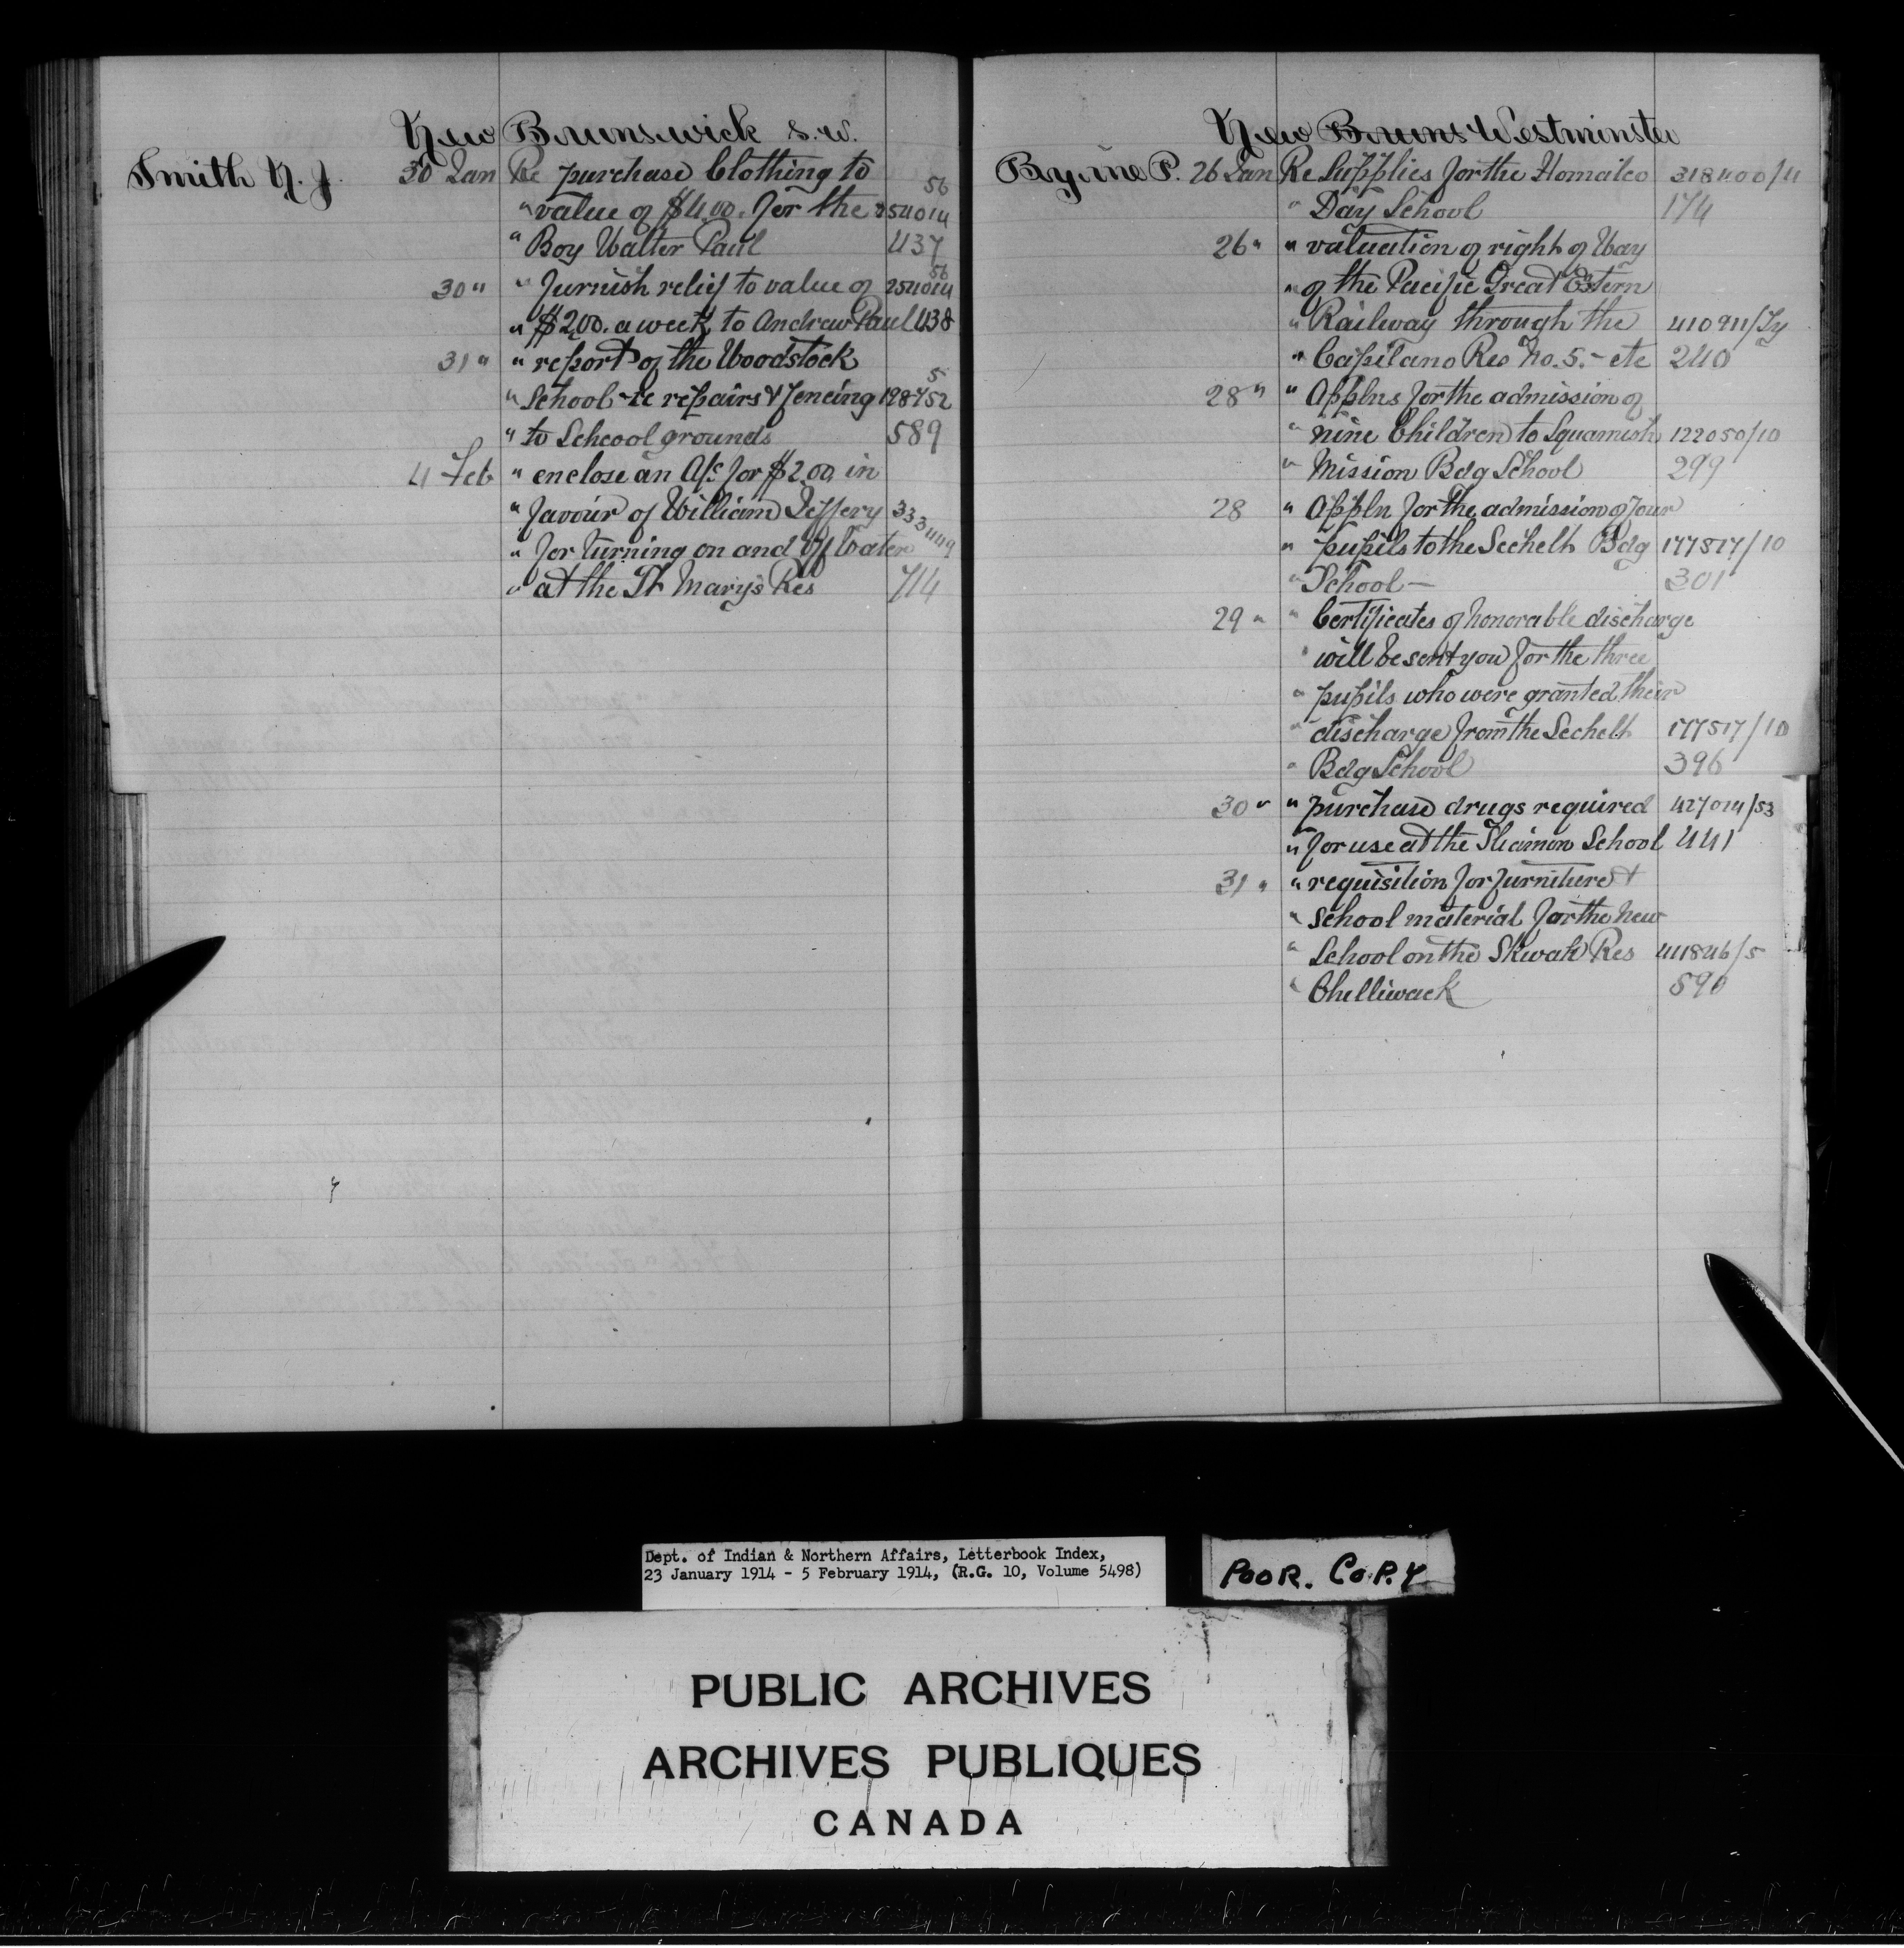 New Brunswick S.W.
Smith N. J. 30 Jan Re purchase Clothing to 56
" value of $4.00. for the 254014
" Boy Walter Paul 437
30 " " furnish relief to value of 254014 56
" $2.00. a week to Andrew Paul 438
31 " " report of the Woodstock
" School re repairs & fencing 198752 5
" to School grounds 589
4 Feb " enclose an A/c for $2.00 in
" favour of William Jeffery 333449
" for turning on and off Water
" at the St Mary's Res 714
New Bruns Westminster
Byrne P. 26 Jan Re Supplies for the Homalco 318400/4
" Day School 174
26 " " valuation of right of Way
" of the Pacific Great Estern
" Railway through the 410911/Ty
" Capilano Res No. 5. - etc 240
28 " " Applns for the admission of
" nine Children to Squamish 122050/10
" Mission Bdg School 299
28 " Appln for the admission of four
" pupils to the Sechelt Bdg 177517/10
" School - 301
29 " " Certificates of honorable discharge
" will be sent you for the three
" pupils who were granted their
" discharge from the Sechelt 177517/10
" Bdg School 396
30 " " purchase drugs required 427014/53
" for use at the Sliamon School 441
31 " " requisition for furniture &
" School material for the New
" School on the Skwah Res 411846/5
" Chelliwack 590
Dept. of Indian & Northern Affairs, Letterbook Index,
23 January 1914 - 5 February 1914, (R.G. 10, Volume 5498)
POOR. COPY
PUBLIC ARCHIVES
ARCHIVES PUBLIQUES
CANADA